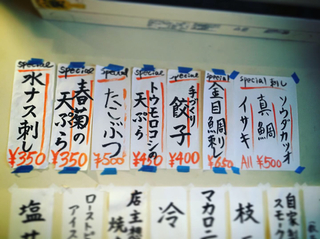 special
水ナス刺し
¥350
special
春菊の
天ぷら
¥350
special
たこぶつ
¥500
special
トウモロコシの
天ぷら
¥450
special
手づくり
餃子
¥400
special
金目鯛
刺し
¥650
special 刺し
ソウダガツオ
真鯛
イサキ
All ¥500
塩
ロースト
アイス
店主
焼
冷
マカロニ
枝
自家製
スモーク